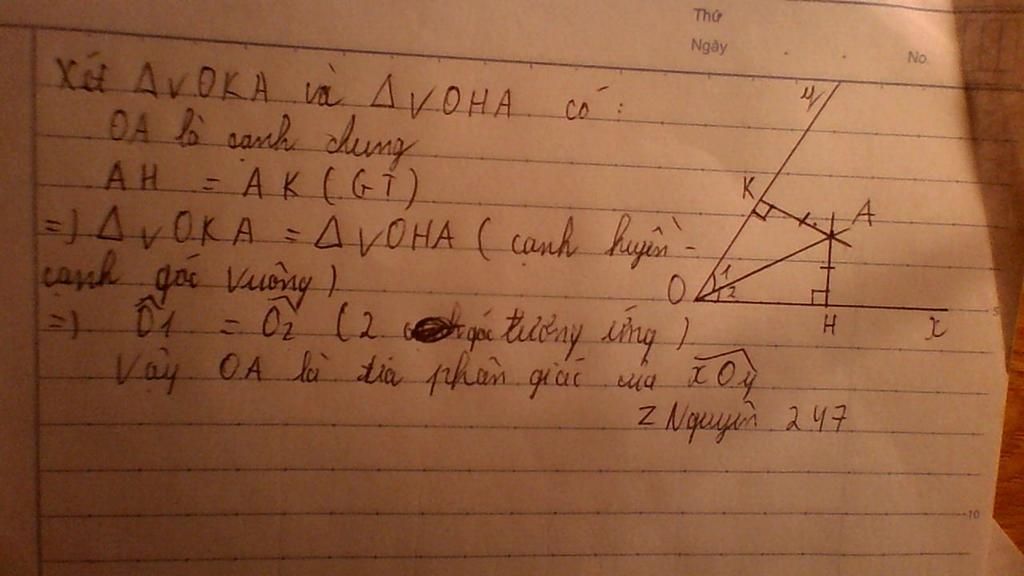 Thứ
Ngày . . No.
Xét ΔvOKA và ΔvOHA có:
OA là cạnh chung
AH = AK (GT)
=) ΔvOKA = ΔvOHA (cạnh huyền -
cạnh góc vuông)
=) Ô1 = Ô2 (2 góc tương ứng)
Vậy OA là tia phân giác của xOy
Z Nguyễn 247
y
K
A
O
1
2
H
x
5
10